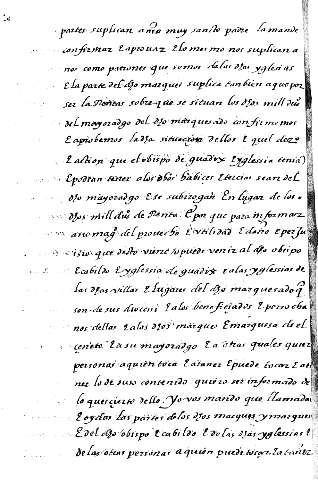 partes suplican a nro muy sancto padre la mande
confirmar E aprovar E lo mesmo nos suplican a
nos como patrones que somos de las dhas yglesias
E la parte del dho marques suplica tanbien a que por
ser la Renta sobre que se situan los dhos mill drs
del mayoradgo del dho marquesado confirmemos
E aprobemos la dha situacion dellos E quel dro
E action que el obispo de guadix E yglessia tenia
E podian tener a los dhos habices E tercios sean del
dho mayoradgo E se subrogan En lugar de los
dhos mill drs de Renta E por que para informar
a no mag del provecho E utilidad E daño E perjui
zio que desto viene o puede venir al dho obispo
E cabildo E yglessia de guadix E a las yglessias de
las dhas villas E lugares del dho marquesado q
son de sus diocesis E a los beneficiados E perrochia
nos dellas E a los dhos marques E marquesa de el
cenete E a su mayoradgo E a otras quales quier
personas a quien toca E atañe E puede tocar E atañer
lo de suso contenido quiero ser informado de
lo que cierto dello. Yo vos mando que llamadas
E oydas las partes de los dhos marques y marquesa
E del dho obispo E cabildo E de las dhas yglessias E
de las otras personas a quien puede tocar E atañer